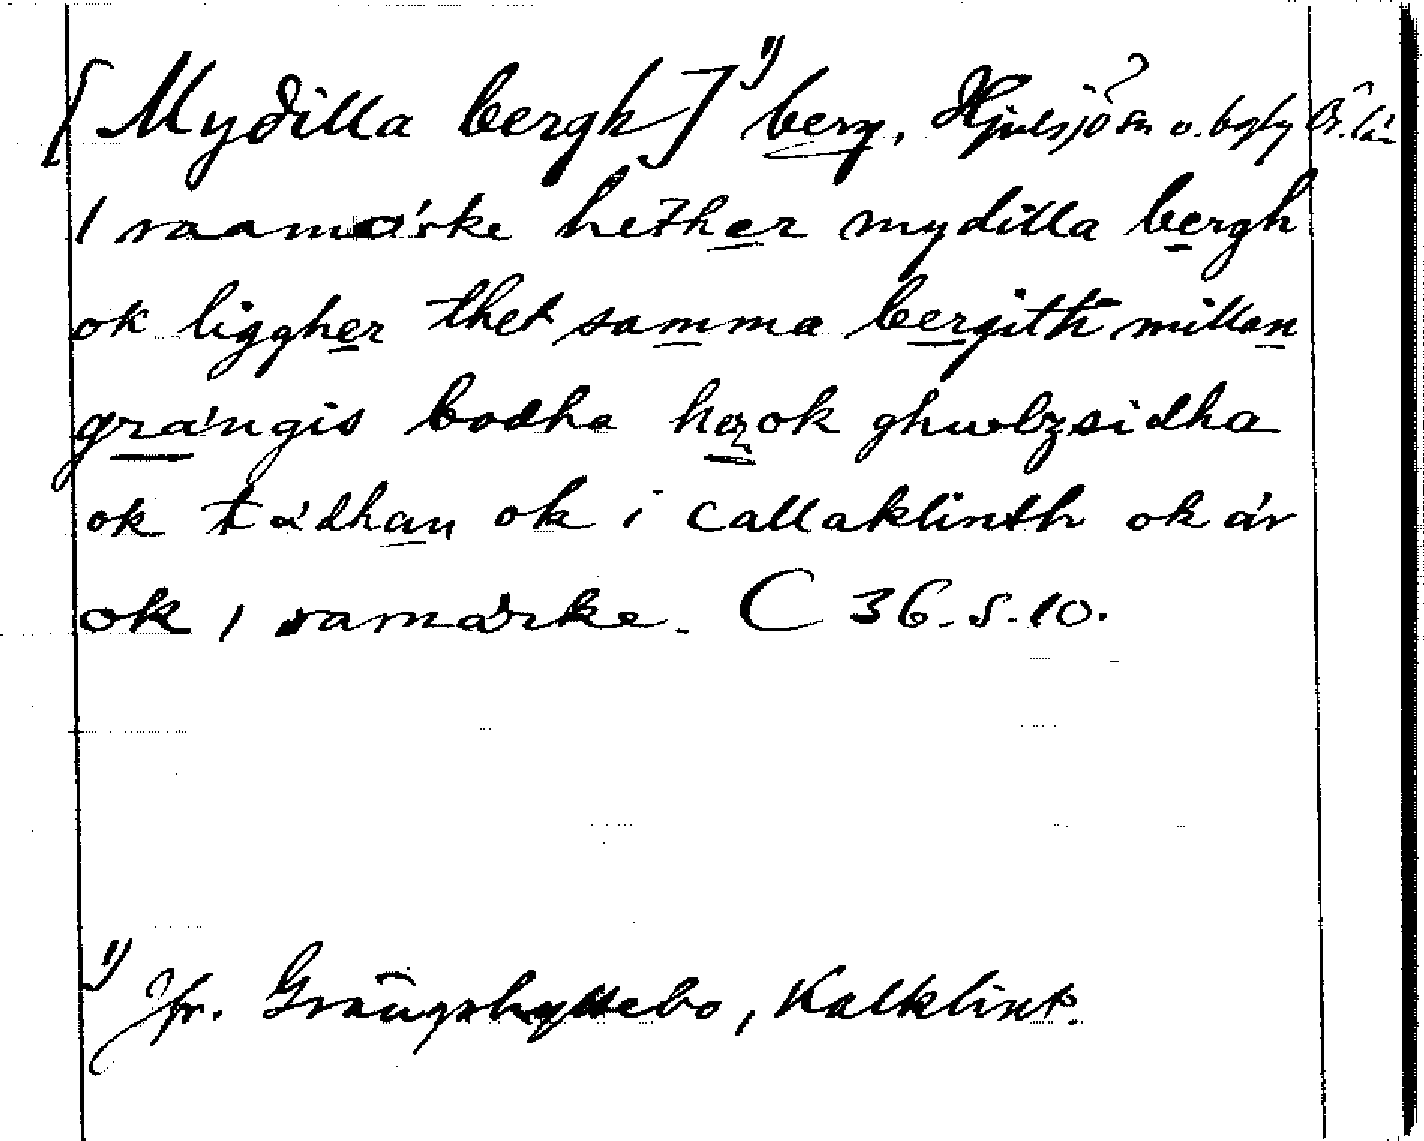 [Mydilla bergh]¹⁾ berg, Hjulsjö sn
1 raamærke hether mydilla bergh
ok liggher thet samma bergith millan
grængis bodha ok ghwlzsidha
ok tædhan ok i callaklinth ok ær
ok 1 ramærke. C 36. s. 10.
¹⁾ Jfr. Grängshyttebo, Kalklint.